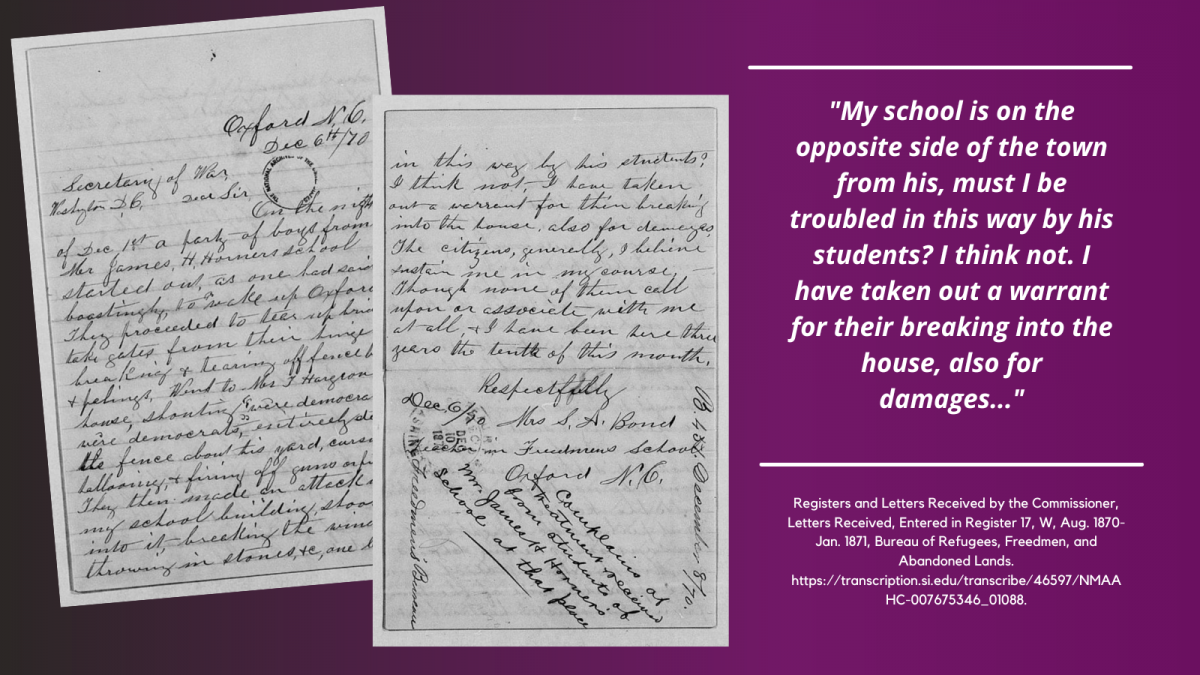 Oxford N.C.
Dec 6th/70
Secretary of War
Washington D.C. Dear Sir,
On the nigh
of Dec 1st a party of boys from
Mr James, H. Horners school
started out, as one had said
boastingly, to wake up Oxford
They proceeded to tear up
take gates from their hinge
breaking & tearing off fence
& pelings, Went to Mrs T Hargrove
house, shouting were democra
were democrats, entirely de
the fence about his yard, cursi
hallooing, & firing off guns
They then made an attack
my school building, shoo
into it, breaking the wind
throwing in stones, &c, one
in this way by his students?
I think not. I have taken
out a warrant for their breaking
into the house, also for damages
The citizens, generelly, I believe
sustain me in my course,
Though none of them call
upon or associate with me
at all, & I have been here three
years the tenth of this month,
Respectfully
Mrs S. A. Bond
Teacher in Freedmens School
Oxford N.C.
Dec. 6/70
DEC
10
Freedmen's Bureau
Complains of
treatment received
from students of
Mr. James H Horners
School at that place
December 8/70.
"My school is on the
opposite side of the town
from his, must I be
troubled in this way by his
students? I think not. I
have taken out a warrant
for their breaking into the
house, also for
damages..."
Registers and Letters Received by the Commissioner,
Letters Received, Entered in Register 17, W, Aug. 1870-
Jan. 1871, Bureau of Refugees, Freedmen, and
Abandoned Lands.
https://transcription.si.edu/transcribe/46597/NMAA
HC-007675346_01088.